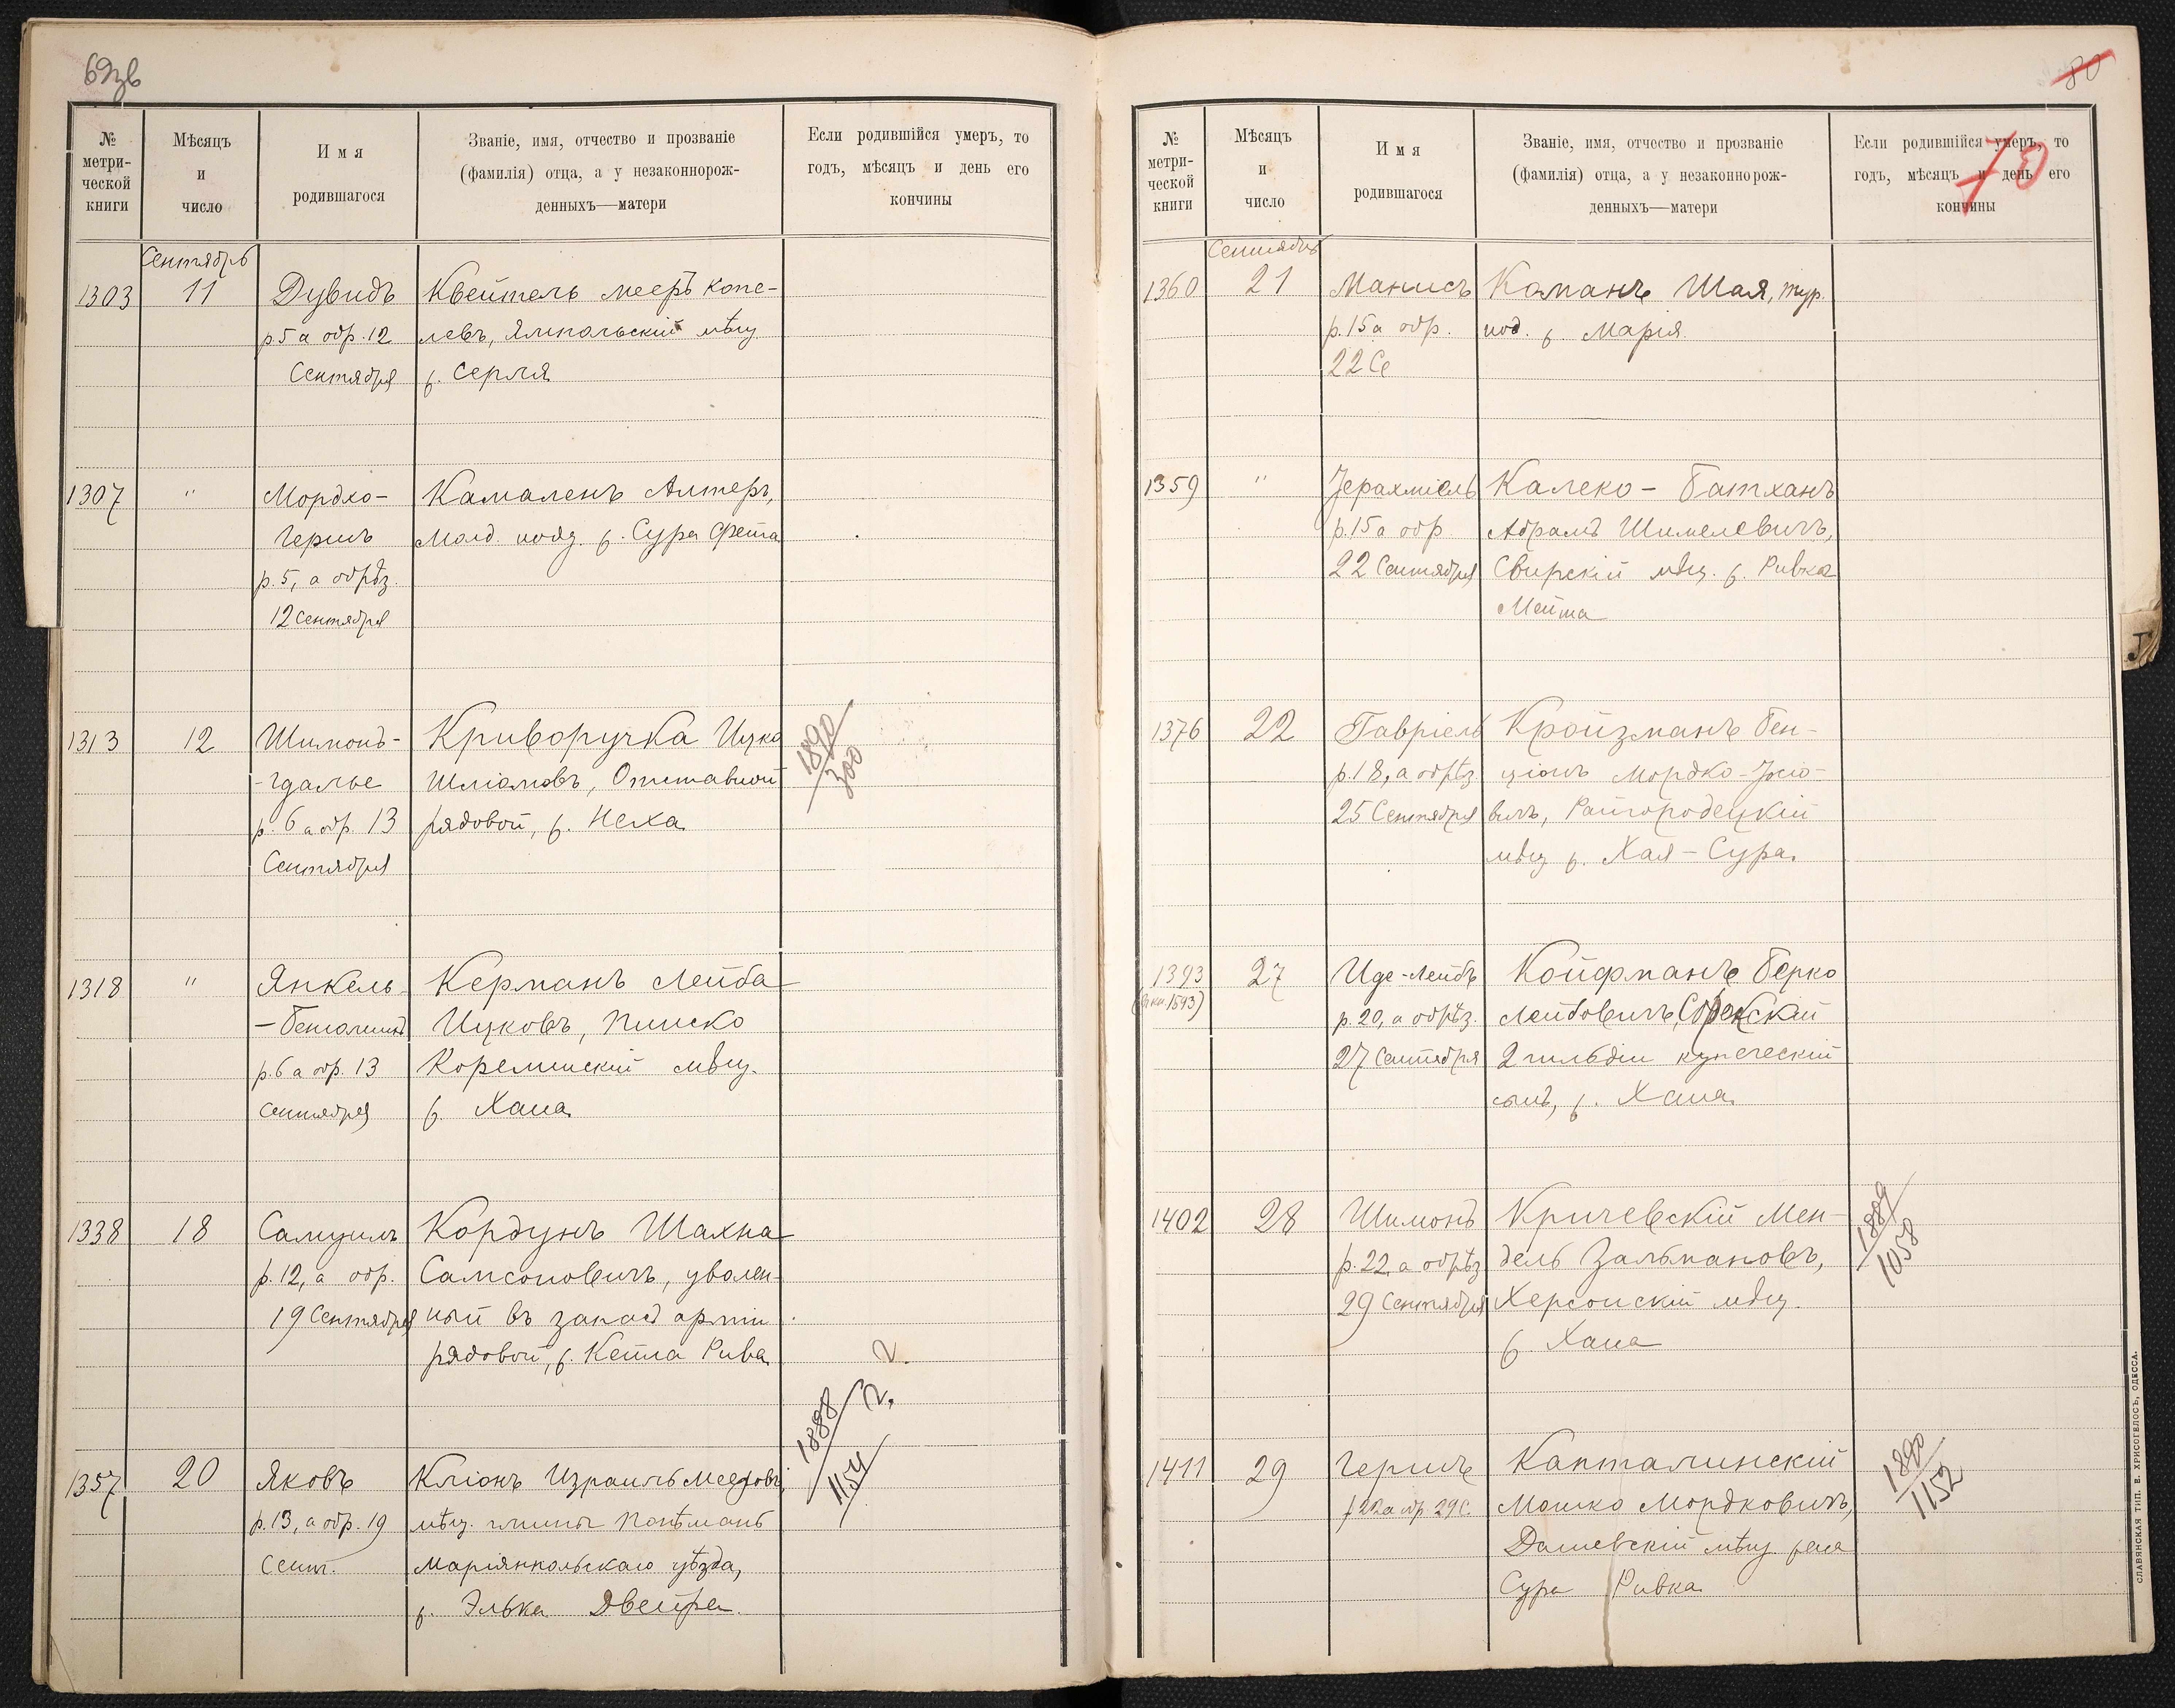 69зв
№ метрической книги
Мѣсяцъ и число
Имя родившагося
Званіе, имя, отчество и прозваніе (фамилія) отца, а у незаконнорожденныхъ—матери
Если родившійся умеръ, то годъ, мѣсяцъ и день его кончины
Сентябрь
1303
11
Дувидъ
р 5 а обр. 12
Сентября
Квейтель Мееръ Копе-
левъ, Ямпольскій мѣщ
ж. Серля
1307
"
Мордко-
Гершъ
р. 5, а обрѣз.
12 Сентября
Камаленъ Алтеръ,
Молд. подд. ж. Сура Фейга
1313
12
Шимонъ-
-Гдалье
р. 6 а обр. 13
Сентября
Криворучка Ицко
Шліомовъ, Отставной
рядовой, ж. Неха
1890
300
1318
"
Янкель-
-Беніаминъ
р. 6 а обр. 13
Сентября
Керманъ Лейба
Ицковъ, Пинско
мѣщ.
ж. Хана
1338
18
Самуилъ
р. 12, а обр.
19 Сентября
Кордунъ Шахна
Самсоновичъ, уволен-
ный въ запасъ арміи
рядовой, ж. Рива
1357
20
Яковъ
р. 13, а обр. 19
Сент.
Кліонъ Израиль
мѣщ. гмины
Маріянпольскаго уѣзда,
ж. Элька Двейра.
1888
1154
80
70
№ метрической книги
Мѣсяцъ и число
Имя родившагося
Званіе, имя, отчество и прозваніе (фамилія) отца, а у незаконнорожденныхъ—матери
Если родившійся умеръ, то годъ, мѣсяцъ и день его кончины
Сентябрь
1360
21
Манисъ
р. 15 а обр.
22 Се
Каманъ Шая, тур.
под. ж. Марія.
1359
"
Іерахміель
р. 15 а обр
22 Сентября
Калеко - Батханъ
Абрамъ Шимелевичъ,
Свирскій мѣщ. ж. Ривка
Мейта
1376
22
Гавріель
р. 18, а обрѣз
25 Сентября
Кройзманъ Бен-
ціонъ Мордко-Іосіо-
вичъ, Райгородецкій
мѣщ ж. Хая - Сура.
1393
(въ кн. 1593)
27
Иде-Лейбъ
р. 20, а обрѣз.
27 Сентября
Койфманъ Берко
Лейбовичъ,
2 гильдіи купеческій
сынъ, ж. Хана
1402
28
Шимонъ
р. 22, а обрѣз
29 Сентября
Кричевскій Мен-
дель Залмановъ,
Херсонскій мѣщ.
ж. Хана
1889
1058
1411
29
Гершъ
р 22 а обр 29 С.
Капталинскій
Мошко Мордковичъ,
Дашевскій мѣщ. жена
Сура Ривка
1890
1152
СЛАВЯНСКАЯ ТИП. Е. ХРИСОГЕЛОСЪ, ОДЕССА.